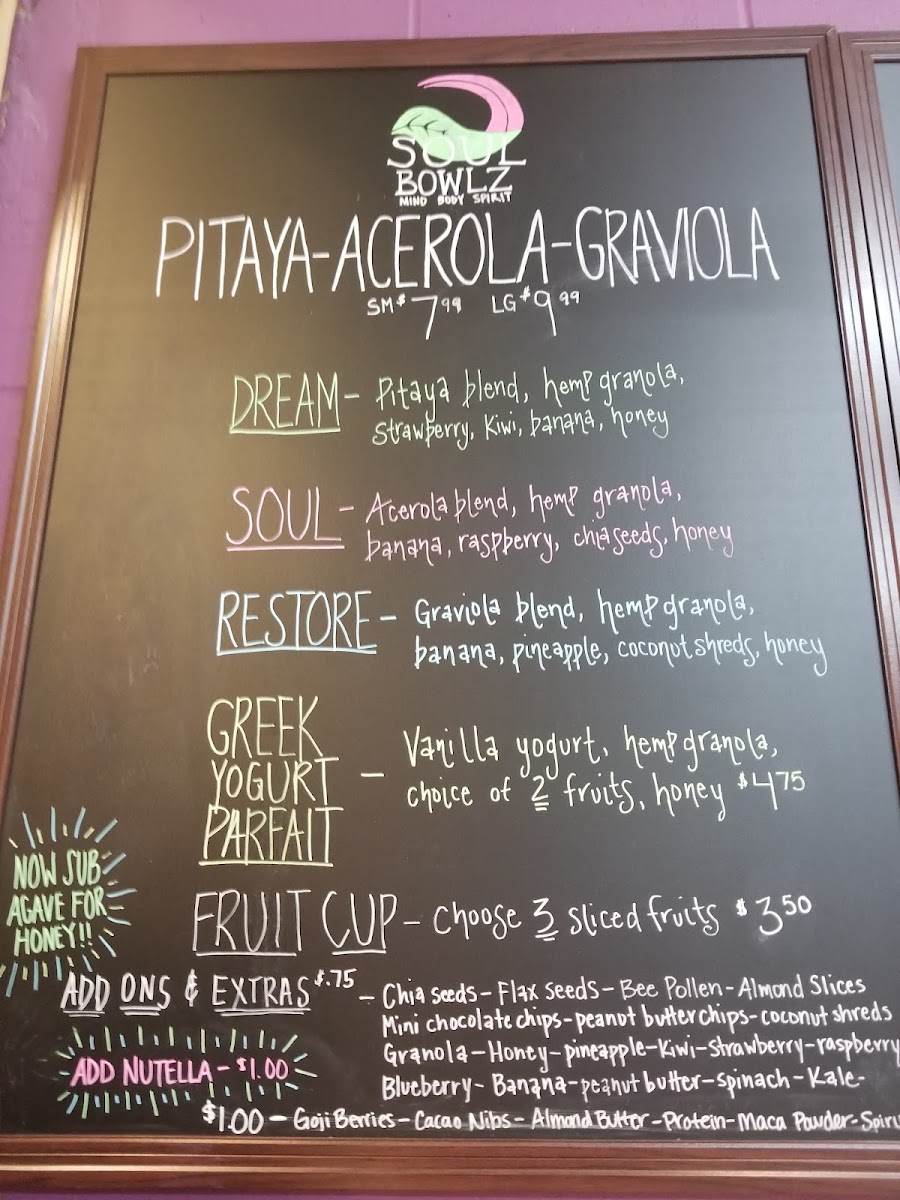 SOUL
BOWLZ
MIND BODY SPIRIT
PITAYA-ACEROLA-GRAVIOLA
SM $7.99 LG $9.99
DREAM- Pitaya blend, hemp granola,
strawberry, kiwi, banana, honey
SOUL- Acerola blend, hemp granola,
banana, raspberry, chia seeds, honey
RESTORE- Graviola blend, hemp granola,
banana, pineapple, coconut shreds, honey
GREEK
YOGURT
PARFAIT
- Vanilla yogurt, hemp granola,
choice of 2 fruits, honey $4.75
FRUIT CUP- Choose 3 sliced fruits $3.50
NOW SUB
AGAVE FOR
HONEY!!
ADD ONS & EXTRAS $.75 - Chia seeds-Flax seeds-Bee Pollen-Almond Slices
Mini chocolate chips-peanut butter chips-coconut shreds
Granola-Honey-pineapple-Kiwi-strawberry-raspberry
Blueberry-Banana-peanut butter-spinach-Kale-
ADD NUTELLA-$1.00
$1.00-Goji Berries-Cacao Nibs-Almond Butter-Protein-Maca Powder-